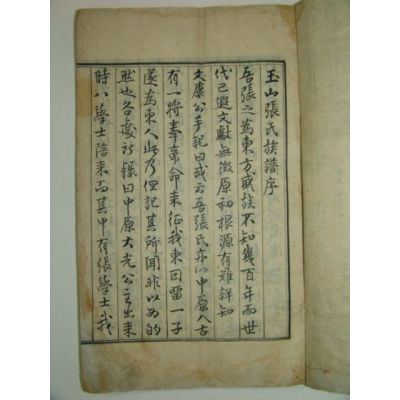 玉山張氏族譜序
吾張之爲東方盛族不知幾百年而世
代已遐文獻無徵原初根源有難詳知
文康公手記曰或云吾張氏亦以中原人古
有一將奉帝命來征我東因留一子
遂爲東人此乃但記其所聞非以爲的
然也各處所錄曰中原大光公主出來
時八學士陪來而其中有張學士我